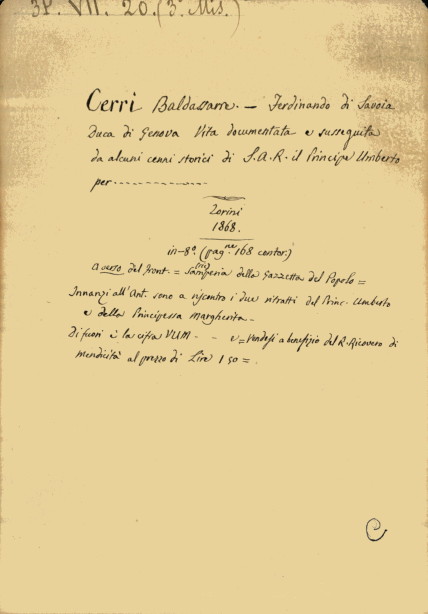 3P. VII. 20. (3ª Mis.)
Cerri Baldassarre. — Ferdinando di Savoia
Duca di Genova Vita documentata e susseguita
da alcuni cenni storici di S.A.R. il Principe Umberto
per
Torini
1868.
in-8º. (pag.ne 168 contor.)
a verso del front. = Stamperia della Gazzetta del Popolo =
Innanzi all'Ant. sono a riscontro i due ritratti del Princ. Umberto
e della Principessa Margherita —
Di fuori è la cifra VUM. - - e = Vendesi a benefizio del R. Ricovero di
mendicità al prezzo di Lire 1 50 = .
C